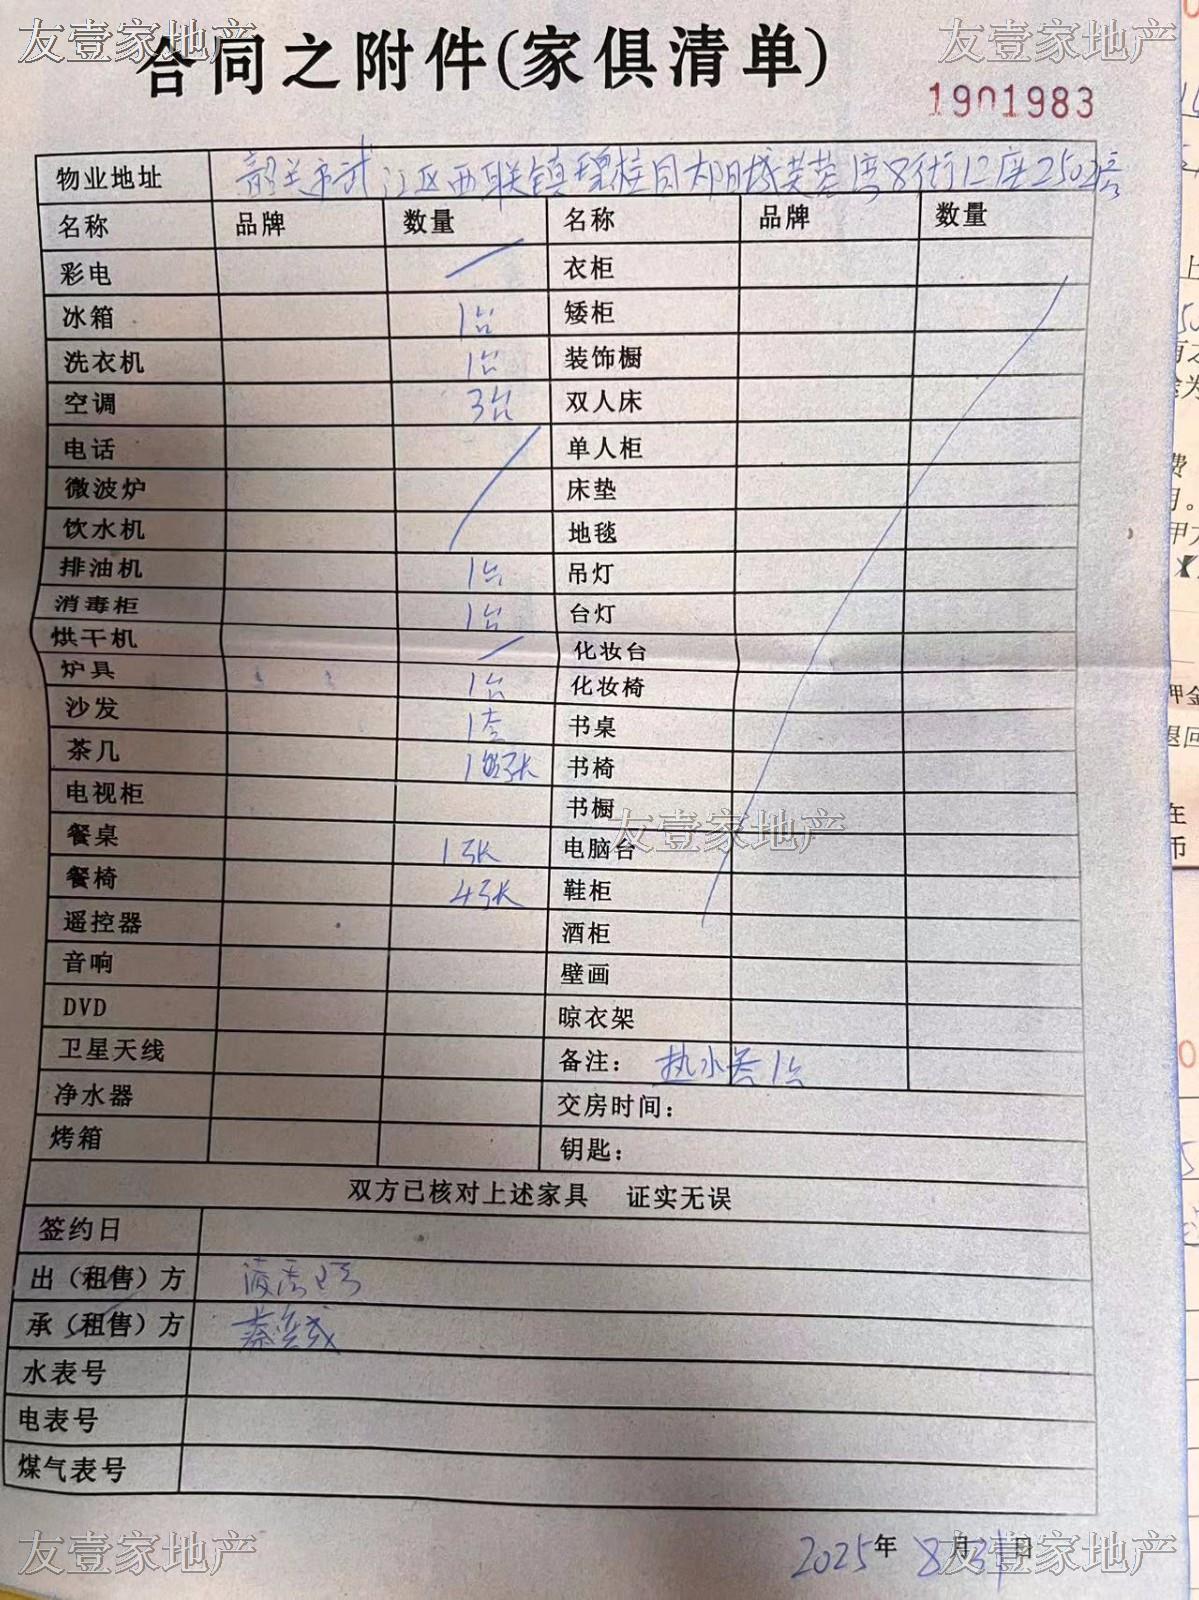 友壹家地产 友壹家地产
合同之附件(家俱清单)
1901983
物业地址 韶关市武江区西联镇碧桂园太阳城芙蓉湾8街12座2502房
名称 品牌 数量 名称 品牌 数量
彩电 衣柜
冰箱 1台 矮柜
洗衣机 1台 装饰橱
空调 3台 双人床
电话 单人柜
微波炉 床垫
饮水机 地毯
排油机 1台 吊灯
消毒柜 1台 台灯
烘干机 化妆台
炉具 1台 化妆椅
沙发 1套 书桌
茶几 1张 书椅
电视柜 书橱
友壹家地产
餐桌 1张 电脑台
餐椅 4张 鞋柜
遥控器 酒柜
音响 壁画
DVD 晾衣架
卫星天线 备注: 热水器1台
净水器 交房时间:
烤箱 钥匙:
双方已核对上述家具 证实无误
签约日
出(租售)方
承(租售)方
水表号
电表号
煤气表号
2025年8月31日
友壹家地产 友壹家地产